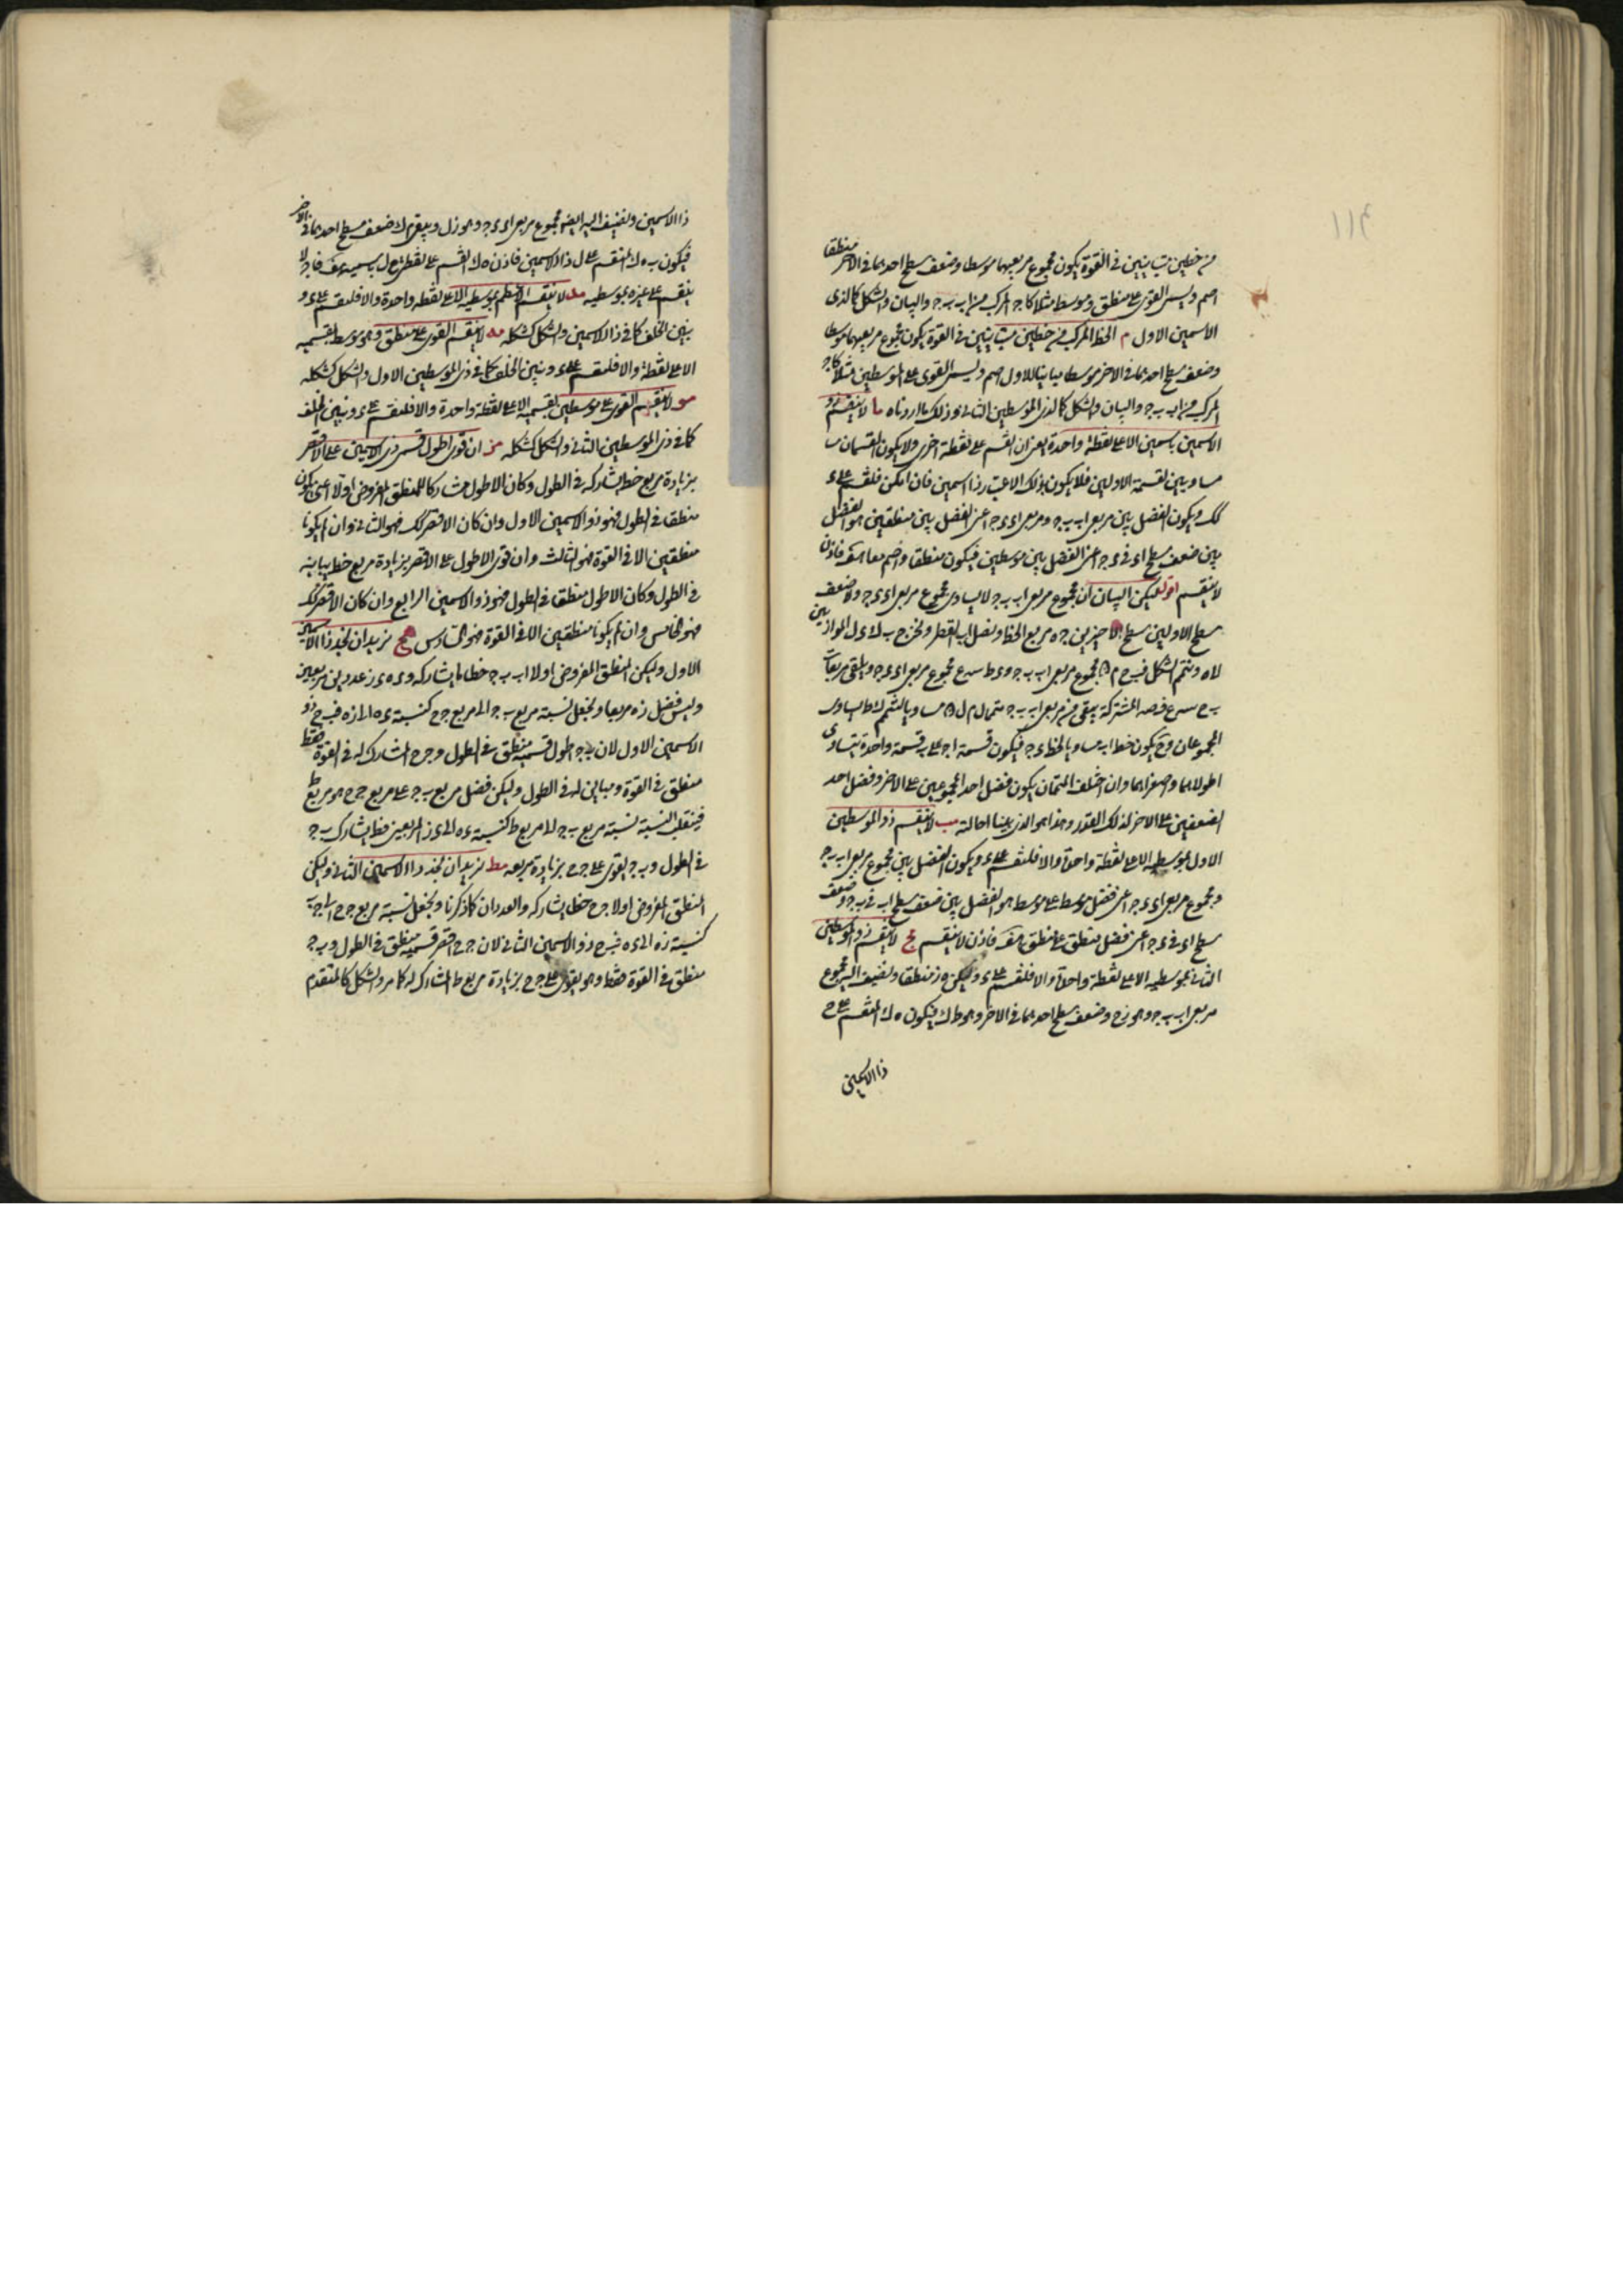 ١١٤
من خطين متباينين في القوة يكون مجموع مربعيهما موسطا وضعف سطح احدهما في الاخر منطقا
اصم ويسمى القوى على منطق وموسط مثلا كاج المركب من اب بج والبيان والشكل كالذى
الاسمين الاول م الخط المركب من خطين متباينين في القوة يكون مجموع مربعيهما موسطا
وضعف سطح احدهما في الاخر موسطا مباينا للاول اصم ويسمى القوى على الموسطين مثلا كاج
المركب من اب بج والبيان والشكل كالذى الموسطين الثانى وذلك ما اردناه ما لا ينقسم ذو
الاسمين باسمين الا على نقطة واحدة يعنى ان انقسم على نقطة اخرى ولا يكون القسمان
مساويين لقسميه الاولين فلا يكون بذلك الاعتبار ذا اسمين فان امكن فلينقسم على ء
كك ويكون الفضل بين مربعى اب بج ومربعى اء ءج اعنى الفضل بين منطقين هو الفضل
بين ضعف سطح اء في ءج اعنى الفضل بين موسطين فيكون منطقا واصم معا هف فاذن
لا ينقسم اقول ليكن البيان ان مجموع مربعى اب بج لا يساوى مجموع مربعى اء ءج ولا ضعف
سطح الاولين سطح الاخيرين جه مربع الخط ونصل اه القطر ونخرج ب ك ء ل الموازيين
لاه ونتمم الشكل
المجموعان وح يكون خط اب مساويا لخط ءج فيكون قسمة اج على ب قسمة واحدة يتساوى
اطولاهما واصغراهما وان اختلف المتممان يكون فضل احد المجموعين على الاخر وفضل احد
الضعفين على الاخر لذلك القدر وهذا هو الذى بينا احالته مب لا ينقسم ذو الموسطين
الاول بموسطيه الا على نقطة واحدة والا فلينقسم على ء ويكون الفضل بين مجموع مربعى اب بج
ومجموع مربعى اء ءج اعنى فضل موسط على موسط هو الفضل بين ضعف سطح اب في بج وضعف
سطح اء في ءج اعنى فضل منطق على منطق هف فاذن لا ينقسم مج لا ينقسم ذو الموسطين
الثانى بموسطيه الا على نقطة واحدة والا فلينقسم على ء وليكن ه ز منطقا ونضيف اليه مجموع
مربعى اب بج وهو زح وضعف سطح احدهما في الاخر وهو ط ك فيكون ه ك المنقسم على ح
ذا الاسمين
ذا الاسمين ونضيف اليه ايضا مجموع مربعى اء ءج وهو زل ويبقى م ك ضعف سطح احدهما في الاخر
فيكون ه ك المنقسم على ل ذا الاسمين فاذن ه ك انقسم على نقطتى ح ل باسميه هف فاج لا
ينقسم على غيره بموسطيه مد لا ينقسم الاعظم بموسطيه الا على نقطة واحدة والا فلينقسم على ء و
يتبين الخلف كما في ذى الاسمين والشكل كشكله مه لا ينقسم القوى على منطق وموسط بقسميه
الا على نقطة والا فلينقسم على ء ويتبين الخلف كما في ذى الموسطين الاول والشكل كشكله
مو لا ينقسم القوى على موسطين بقسميه الا على نقطة واحدة والا فلينقسم على ء ويتبين الخلف
كما في ذى الموسطين الثانى والشكل كشكله مز ان قوى اطول قسمى ذى الاسمين على الاقصر
بزيادة مربع خط يشاركه في الطول وكان الاطول مشاركا للمنطق المفروض اولا اعنى يكون
منطقا في الطول فهو ذو الاسمين الاول وان كان الاقصر كك فهو الثانى وان لم يكونا
منطقين الا في القوة فهو الثالث وان قوى الاطول على الاقصر بزيادة مربع خط يباينه
في الطول وكان الاطول منطقا في الطول فهو ذو الاسمين الرابع وان كان الاقصر كك
فهو الخامس وان لم يكونا منطقين الا في القوة فهو السادس مح نريد ان نجد ذا الاسمين
الاول وليكن المنطق المفروض اولا اب بج خطا ما يشاركه وءه ءز عددين مربعين
وليس فضل زه مربعا ونجعل نسبة مربع بج الى مربع جح كنسبة ءه الى زه فبح ذو
الاسمين الاول لان بج اطول قسميه منطق في الطول وجح المشارك له في القوة فقط
منطق في القوة ومباين له في الطول وليكن فضل مربع بج على مربع جح هو مربع ط
فبقلب النسبة نسبة مربع بج الى مربع ط كنسبة ءه الى ءز المربعين فط يشارك بج
في الطول وبج يقوى على جح بزيادة مربعه مط نريد ان نجد ذا الاسمين الثانى وليكن
المنطق المفروض اولا جح خطا يشاركه والعددان كما ذكرنا ونجعل نسبة مربع جح الى جب
كنسبة زه الى ءه فبح ذو الاسمين الثانى لان جح اقصر قسميه منطق في الطول وبج
منطق في القوة فقط وهو يقوى على جح بزيادة مربع ط المشارك له كما مر والشكل كالمتقدم